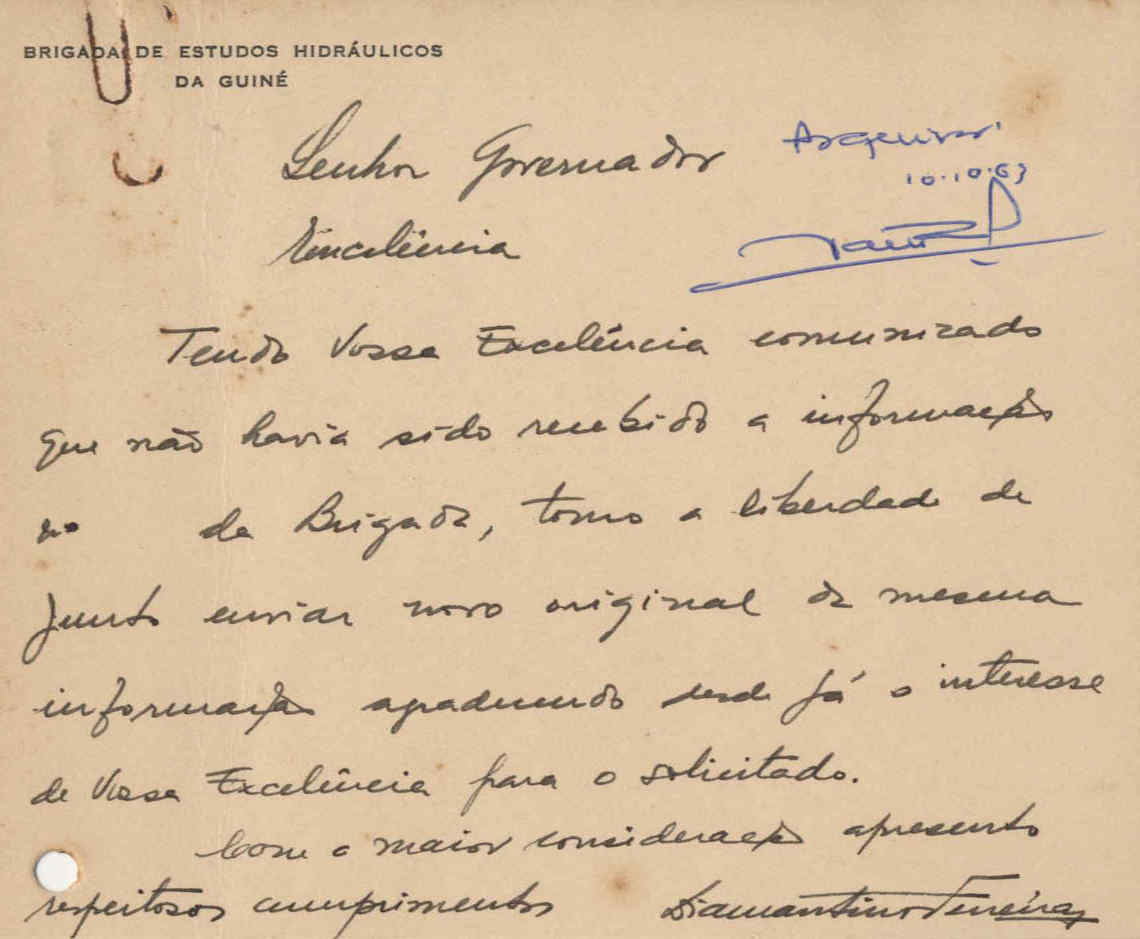 BRIGADA DE ESTUDOS HIDRÁULICOS
DA GUINÉ
Senhor Governador
Arquivar
10.10.63
Excelência
Tendo Vossa Excelência comunicado
que não havia sido recebido a informação
nº da Brigada, tomo a liberdade de
junto enviar novo original da mesma
informação agradecendo desde já o interesse
de Vossa Excelência para o solicitado.
Com a maior consideração apresento
respeitosos cumprimentos Diamantino Ferreira